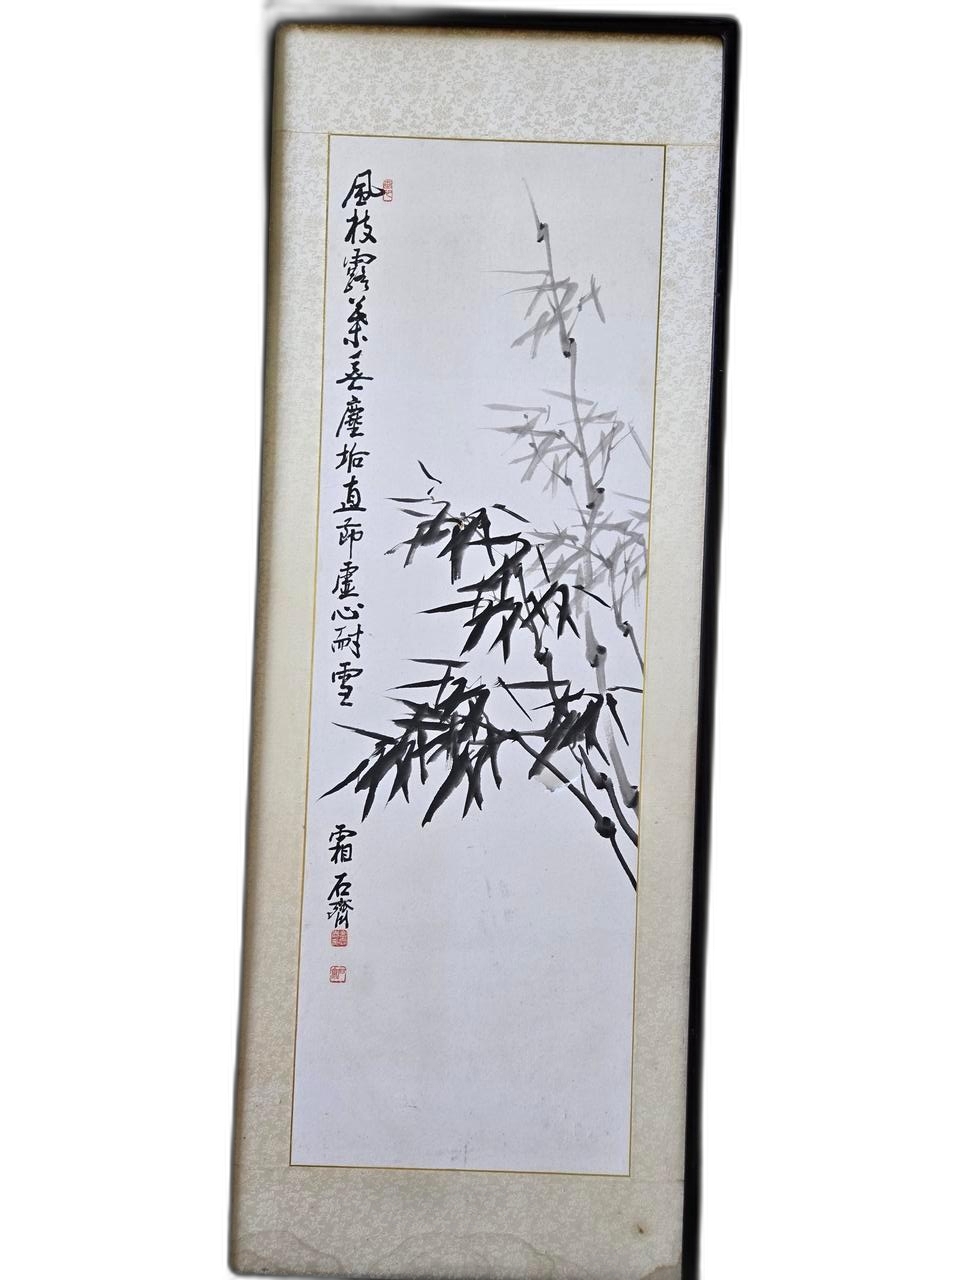 風枝露葉無塵垢直節虛心耐雪
霜 石齋